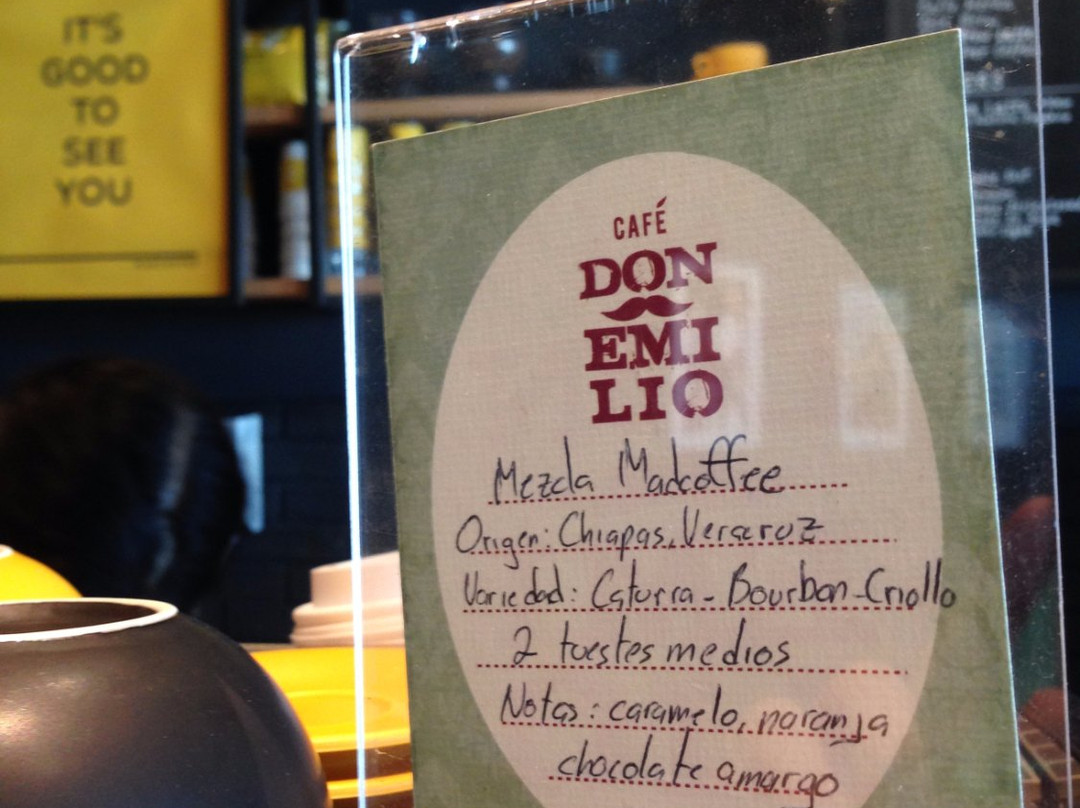 IT'S
GOOD
TO
SEE
YOU
CAFÉ
DON
EMI
LIO
Mezcla Madcoffee
Origen: Chiapas, Veracruz
Variedad: Caturra - Bourbon - Criollo
2 tuestes medios
Notas: caramelo, naranja
chocolate amargo